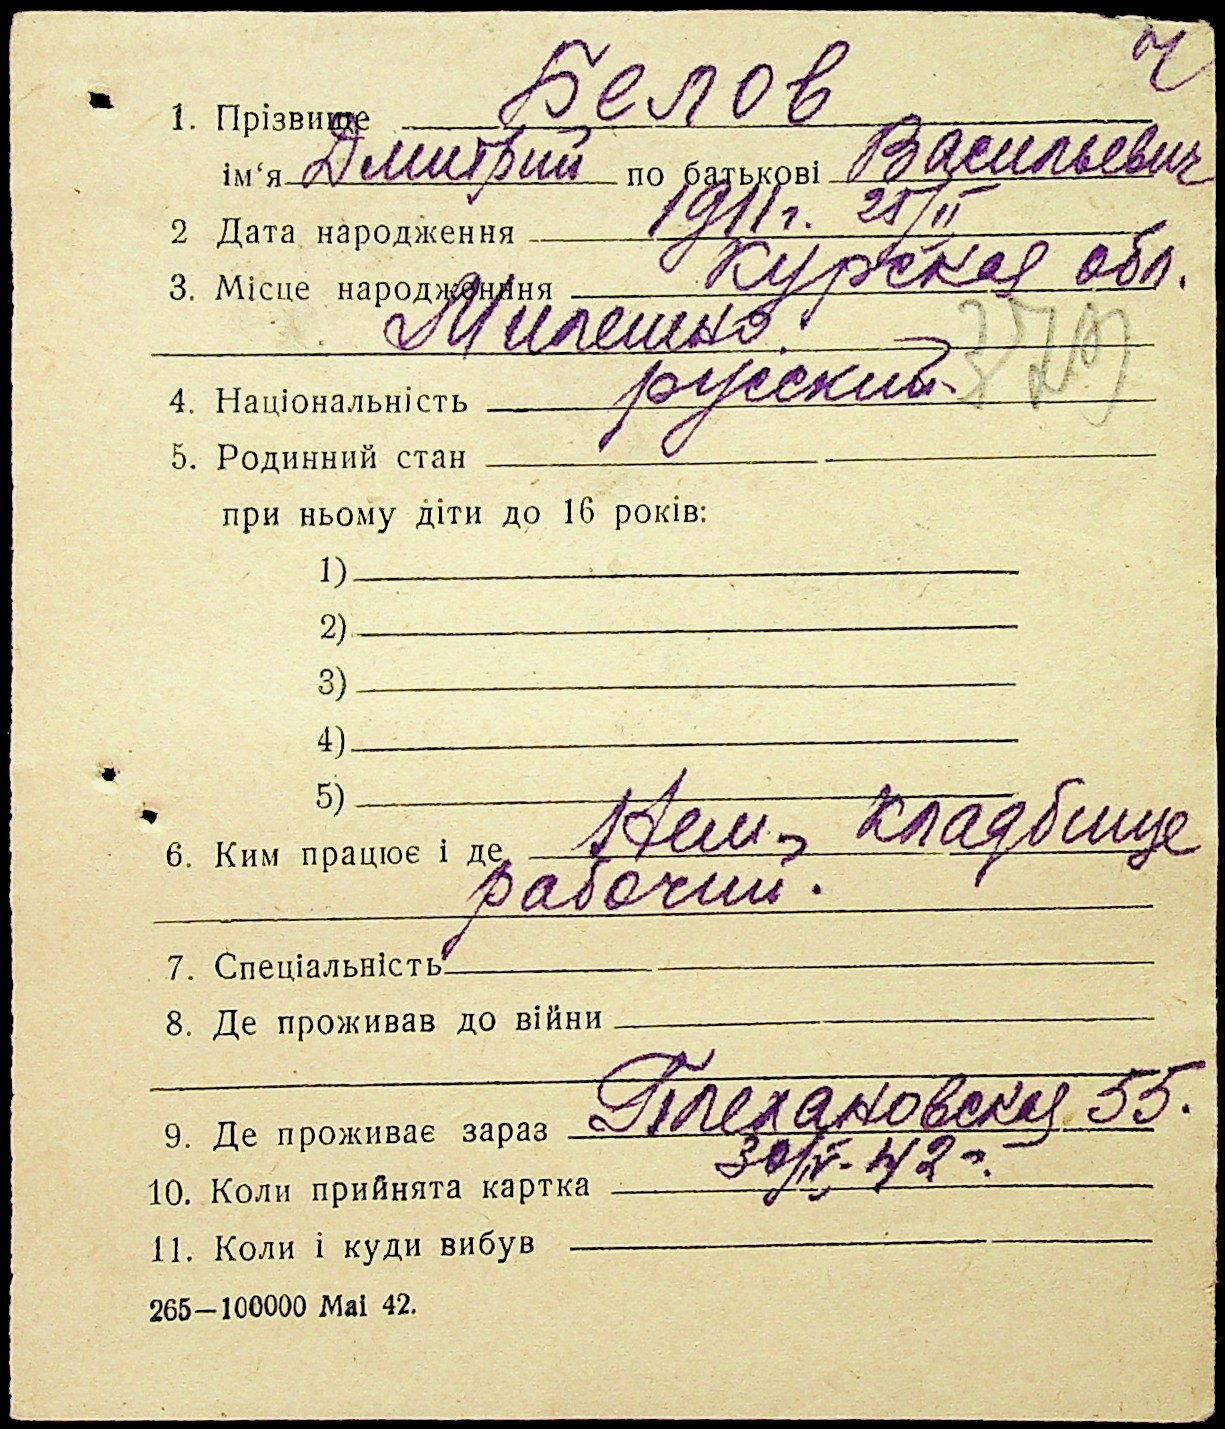 ч
1. Прізвище Белов
ім‘я Дмитрий по батькові Васильевич
2 Дата народження 1911г. 25/II
3. Місце народженння Курская обл.
4. Національність русский
5. Родинний стан
при ньому діти до 16 років:
1)
2)
3)
4)
5)
6. Ким працює і де Нем. кладбище
рабочий.
7. Спеціальність
8. Де проживав до війни
9. Де проживає зараз Плехановская 55.
10. Коли прийнята картка 42 г.
11. Коли і куди вибув
265—100000 Mai 42.